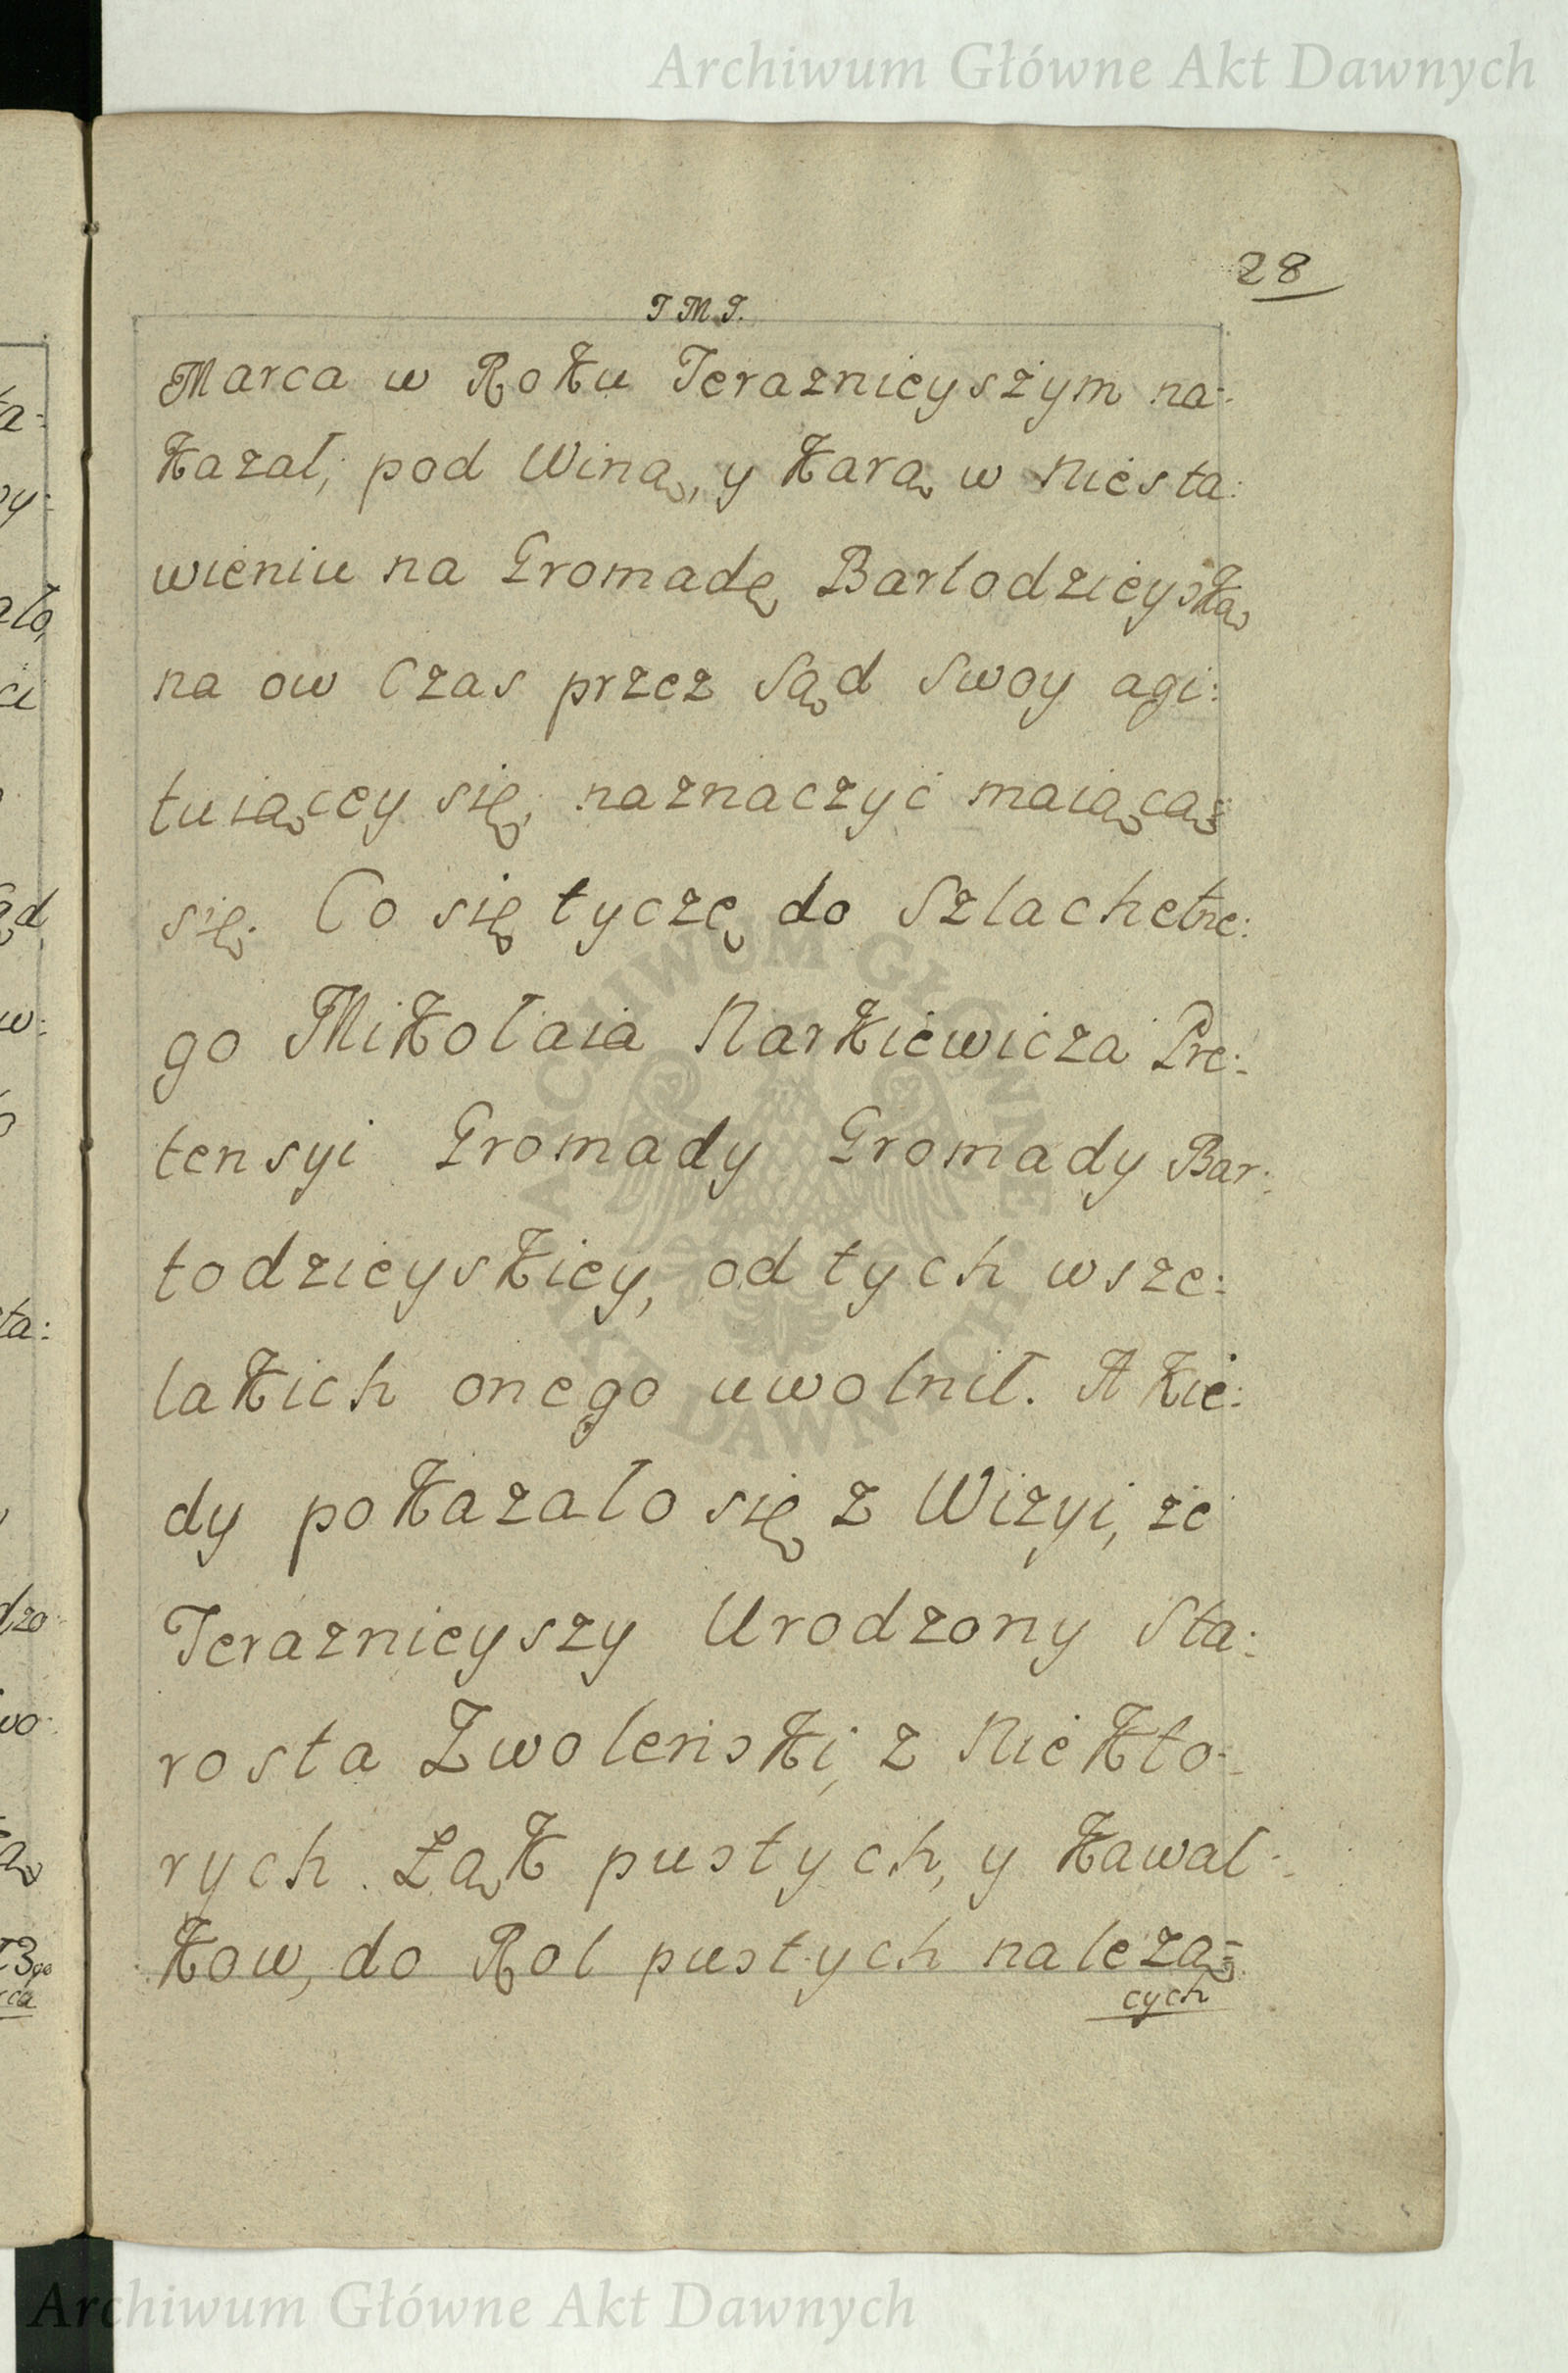 Archiwum Główne Akt Dawnych
28
J M J.
Marca w Roku Teraznieyszym na:
kazał, pod Winą, y karą w niesta:
wieniu na Gromadę Bartodzieyską
na ow Czas przez Sąd Swoy agi:
tuiącey się, naznaczyć maiącą
się. Co się tyczę do Szlachetne:
go Mikołaia Narkiewicza Pre:
tensyi Gromady Gromady Bar:
todzieyskiey, od tych wsze:
lakich onego uwolnił. A kie:
dy pokazało się z Wizyi, że
Teraznieyszy Urodzony Sta:
rosta Zwoleński, z niekto:
rych Łąk pustych, y kawał:
kow, do Rol pustych należą=
cych
ARCHIWUM GŁÓWNE AKT DAWNYCH
Archiwum Główne Akt Dawnych